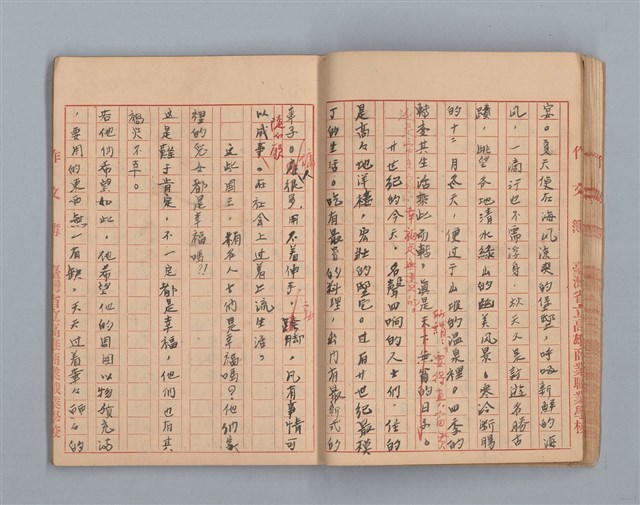 宴。夏天便在海風涼爽的堡壘，呼吸新鮮的海
風，一滴汗也不需浮身。秋天又是訪遊名勝古
蹟，眺望各地清水綠山的幽美風景。寒冷斷腸
的十二月冬天，便过于山坡的温泉裡。四季的
轉变其生活乘此而轉，真是天下無貧的日子。
廿世紀的今天，名聲四响的人士們，住的
是高々地洋樓，宏壯的墅宅。过着廿世紀最模
丁的生活。吃有最貴的料理，出門有最新式的
車子。傭人很多，用不着伸手，踏脚，凡有事情可
以成事。在社会上过着上流生活。
這些國王，有名人士們是幸福嗎？他們家
裡的兒女都是幸福嗎？！
這是難于肯定，不一定都是幸福，他們也有其
禍災不幸。
若他們希望如此，他希望他的周圍以物質充滿
，要用的東西無一有缺。天天过着華々的々的
作文簿
臺灣省立高雄商業職業學校
作文簿
臺灣省立高雄商業職業學校